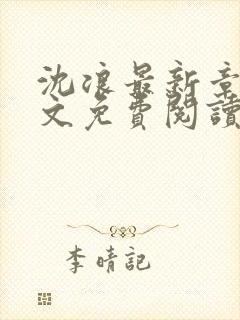 沈浪最新章
文免費閱讀
李晴記